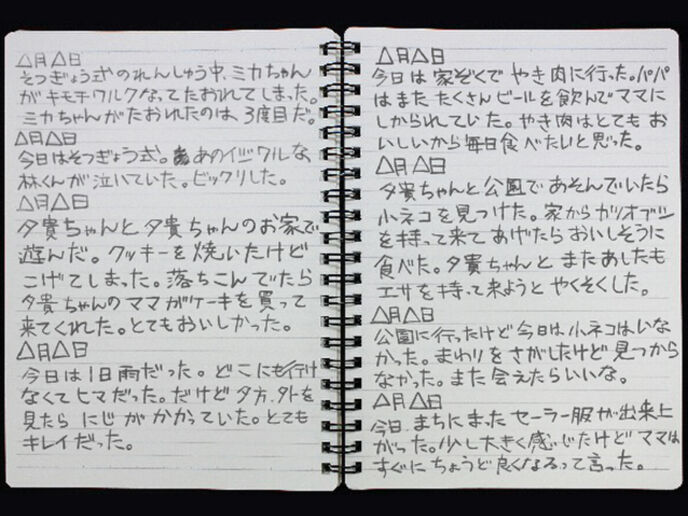 △月△日
そつぎょう式のれんしゅう中、ミカちゃん
がキモチワルクなってたおれてしまった。
ミカちゃんがたおれたのは、3度目だ。
△月△日
今日はそつぎょう式。あのイジワルな
林くんが泣いていた。ビックリした。
△月△日
夕貴ちゃんと夕貴ちゃんのお家で
遊んだ。クッキーを焼いたけど
こげてしまった。落ちこんでたら
夕貴ちゃんのママがケーキを買って
来てくれた。とてもおいしかった。
△月△日
今日は1日雨だった。どこにも行け
なくてヒマだった。だけど夕方、外を
見たらにじがかかっていた。とても
キレイだった。
△月△日
今日は家ぞくでやき肉に行った。パパ
はまたたくさんビールを飲んでママに
しかられていた。やき肉はとてもお
いしいから毎日食べたいと思った。
△月△日
夕貴ちゃんと公園であそんでいたら
小ネコを見つけた。家からカツオブシ
を持って来てあげたらおいしそうに
食べた。夕貴ちゃんとまたあしたも
エサを持って来ようとやくそくした。
△月△日
公園に行ったけど今日は小ネコはいな
かった。まわりをさがしたけど見つから
なかった。また会えたらいいな。
△月△日
今日、まちにまったセーラー服が出来上
がった。少し大きく感じたけどママは
すぐにちょうど良くなるって言った。